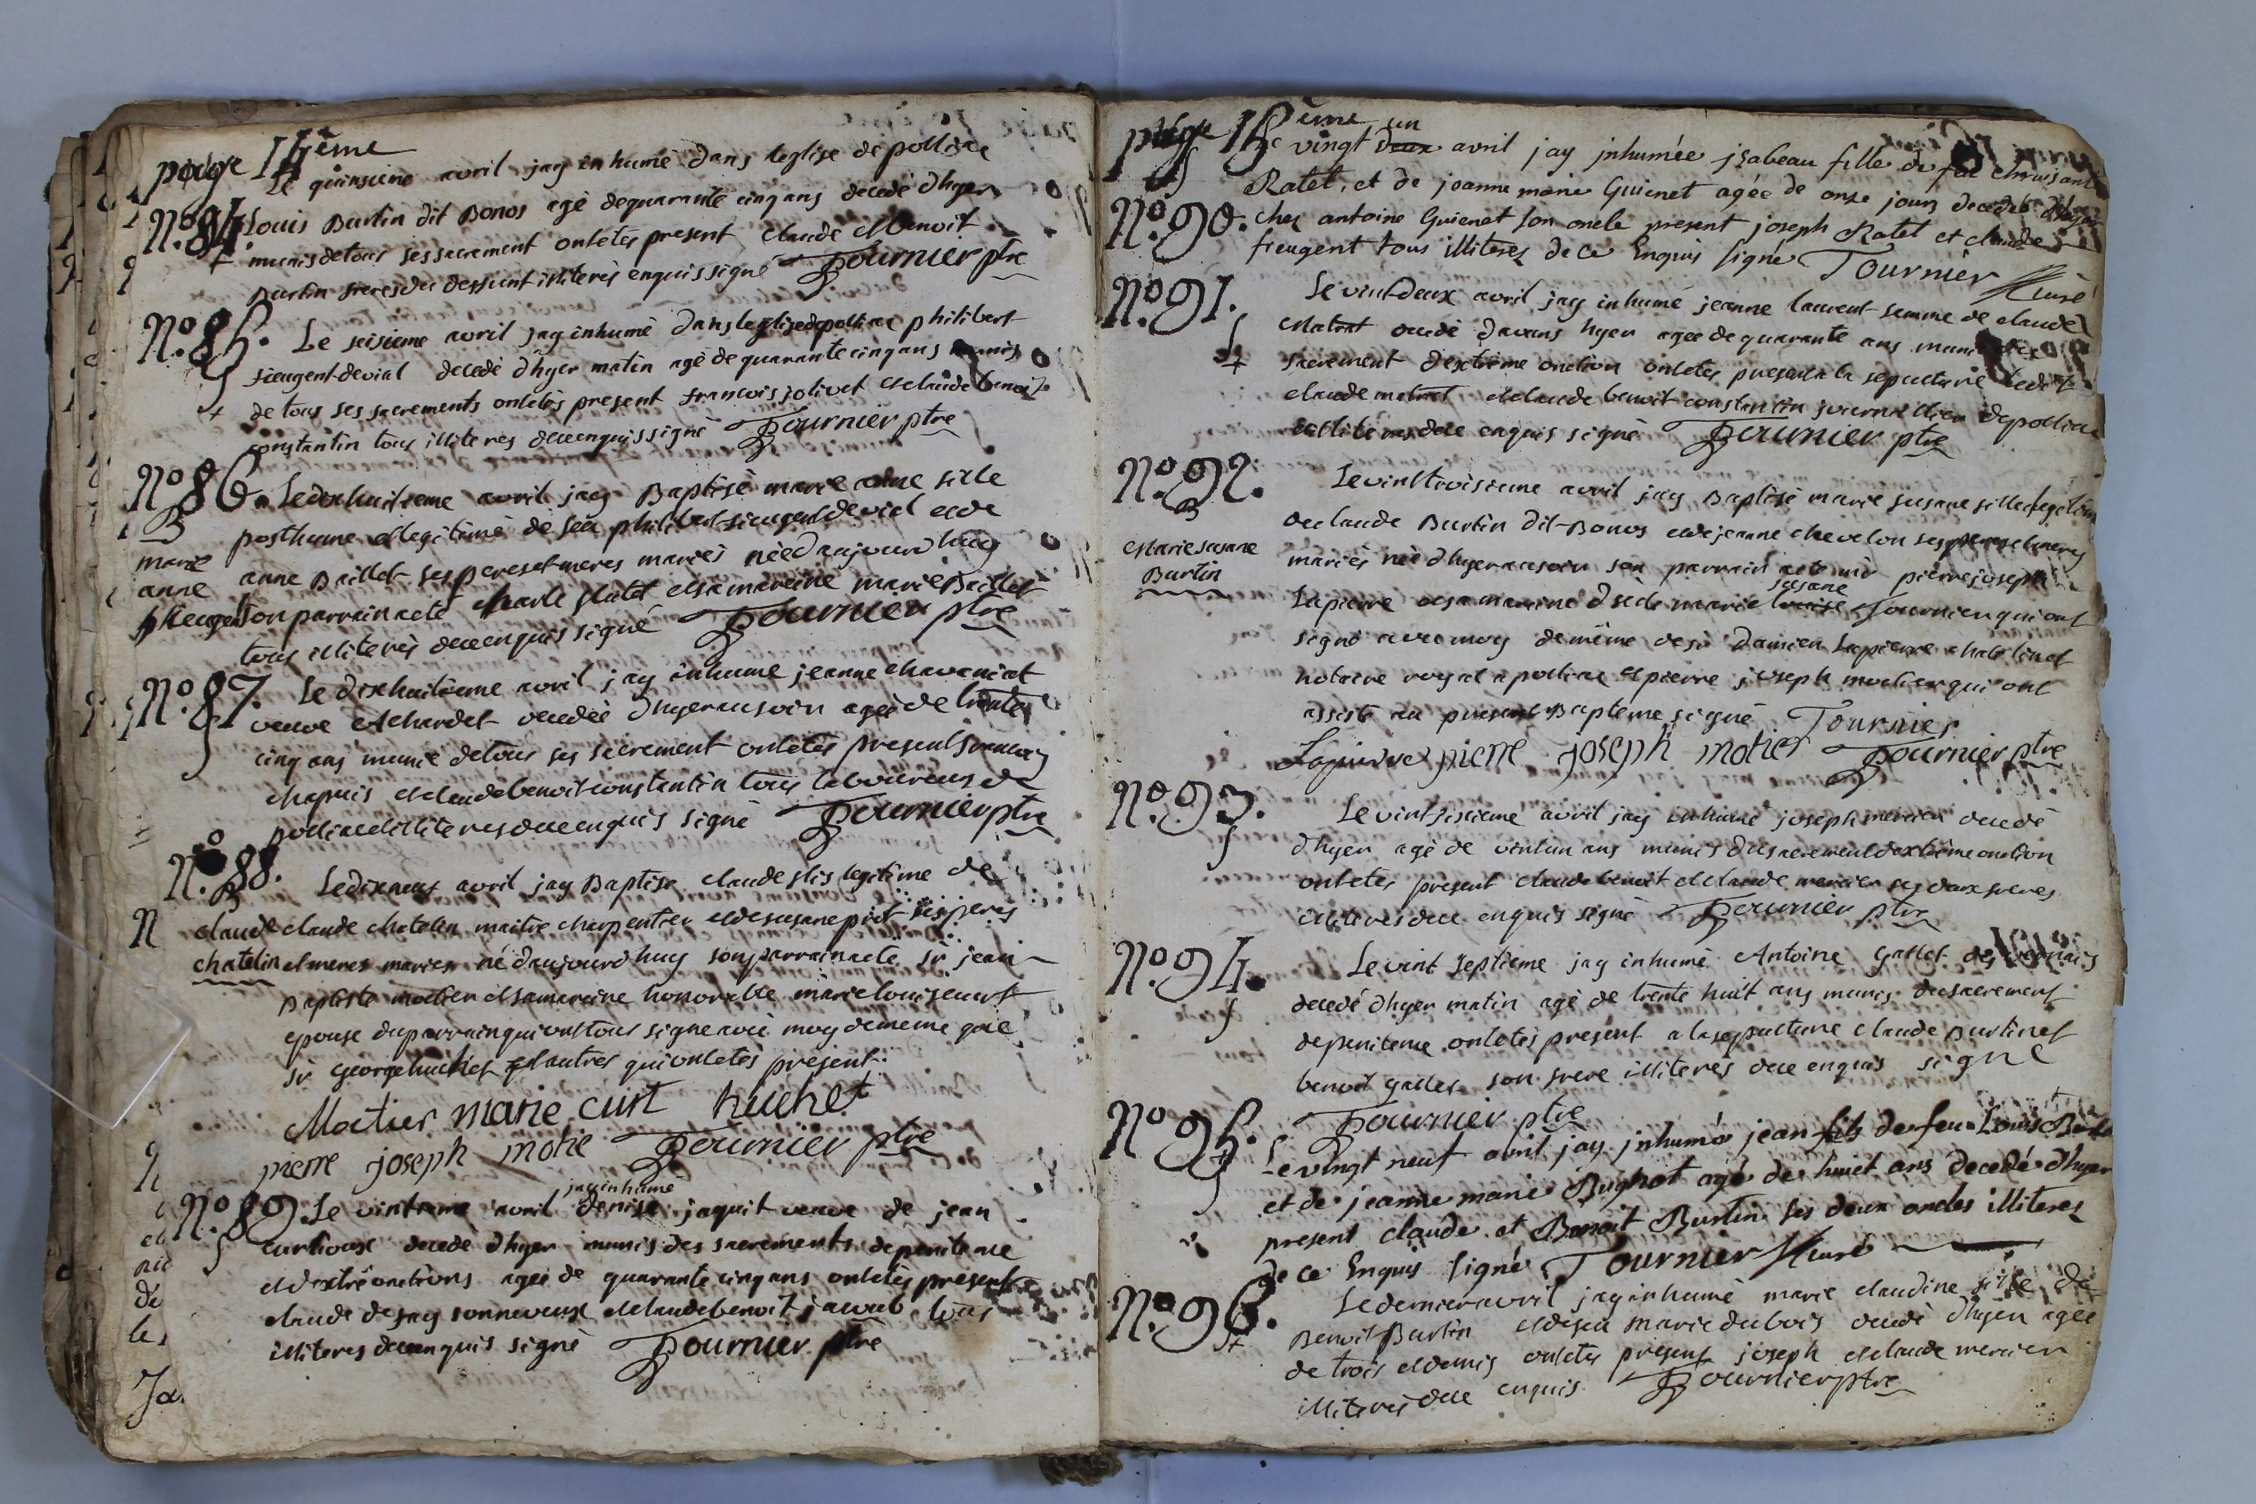 page 14ème
Le quinsieme avril jay inhumé dans leglise de polliac
No. 84. Louis Burtin dit Bonos agé dequarante cinq ans decedé dhyer
munis detous ses sacrement ontetés present Claude et Benoit
Burtin freres du dessunt illiterés enquis signé Tournier ptre
No. 85. Le seisieme avril jay inhumé dans leglise de polliac philibert
fieugent devial decedé dhyer matin agé de quarante cinq ans munis
de tous ses sacrements ontetés present francois jolivet et claude benoit
constantin tous illiteres dece enquis signé Tournier ptre
No. 86. Le dixhuitieme avril jay Baptisé marie anne fille
posthume et legitime de feu philibert fieugent devial et de
marie
anne anne Baillet ses peres et meres mariés née daujourdhuy
fieugent son parrain acté charle Ratet et sa mareine marie Baillet
tous illiterés dece enquis signé Tournier ptre
No. 87. Le dixhuitieme avril jay inhume jeanne chavaniat
veuve et chardet decedée dhyer au soir agée de trente
cinq ans munie detous ses sacrement ontetés present francoy
chapuis et claude benoit constantin tous laboureurs de
polliac et illiteres dece enquis signé Tournier ptre
No. 88. Le dixneuf avril jay Baptisé claude fils legitime de
claude claude chatelin maitre charpentier et de susane piot ses peres
chatelin et meres mariés né daujourdhuy son parrain acté sr jean
Baptiste motier et sa mareine honorable marie louise curt
epouse du parrain qui ont tous signé avec moy dememe que
sr George huchet et autres qui ont etés present
Motier marie curt huchet
pierre joseph motie Tournier ptre
jay inhumé
No. 89. Le vintieme avril denise jaquit veuve de jean
curtioux decede dhyer munis des sacrements de penitence
et dextre onctions agée de quarante cinq ans ontetés present
claude de jay son neveux et claude benoit jacob tous
illiteres dece enquis signé Tournier ptre
page 15ème
un
vingt deux avril jay jnhumée jsabeau fille de feu
Ratet, et de jeanne marie Guienet agée de onze jours decedée dhyer
No. 90. chez antoine Guienet son oncle present joseph Ratet et claude
fieugent tous illiteres de ce Enquis signé Tournier Curé
No. 91. Le vint-deux avril jay inhumé jeanne laurent femme de claude
matrat decedé davans hyer agée de quarante ans munie des
sacrement dextrême onction ontetés present a la sepulture ledit
claude matrat et claude benoit constantin journallier de polliac
illiterés dece enquis signé Tournier ptre
No. 92. Le vint troisieme avril jay Baptisé marie susane fille legitime
de claude Burtin dit-Bonos et de jeanne chevelon ses peres et meres
Marie susane
Burtin
mariés née dhyer au soir son parrain acté mr pierre joseph
susane
Lapierre et sa mareine dsele marie louise Tournier qui ont
signé avec moy demême de sr Damien Lapierre chatelin et
notaire royal a polliac et pierre joseph motier qui ont
assisté au present Bapteme signé Tournier
Lapierre pierre joseph motier Tournier ptre
No. 93. Le vint sixieme avril jay inhumé joseph mercier decedé
dhyer agé de vintun ans munis du sacrement dextrême onction
ontetés present claude benoit et claude mercier ses deux freres
illiteres dece enquis signé Tournier ptre
No. 94. Le vint septieme jay inhumé Antoine Gallet
decedé dhyer matin agé de trente huit ans munis du sacrement
depenitence ontetés present a la sepulture claude Burtin et
benoit gallet son frere illiterés dece enquis signé
Tournier ptre
No. 95. Le vingt neuf avril jay jnhumée jean fils de feu Louis Burtin
et de jeanne marie Bughot agé de huict ans decedé dhyer
present claude et Benoit Burtin ses deux oncles illiteres
de ce Enquis signé Tournier Curé
No. 96. Le dernier avril jay inhumé marie claudine fille de
Benoit Burtin et de feu marie dubois decedé dhyer agée
de trois et demis ontetés present joseph et claude mercier
illiterés dece enquis Tournier ptre